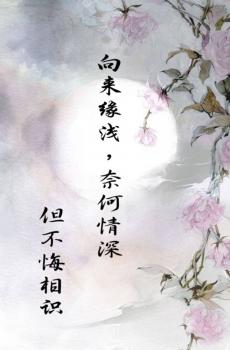 向来缘浅，奈何情深
但不悔相识